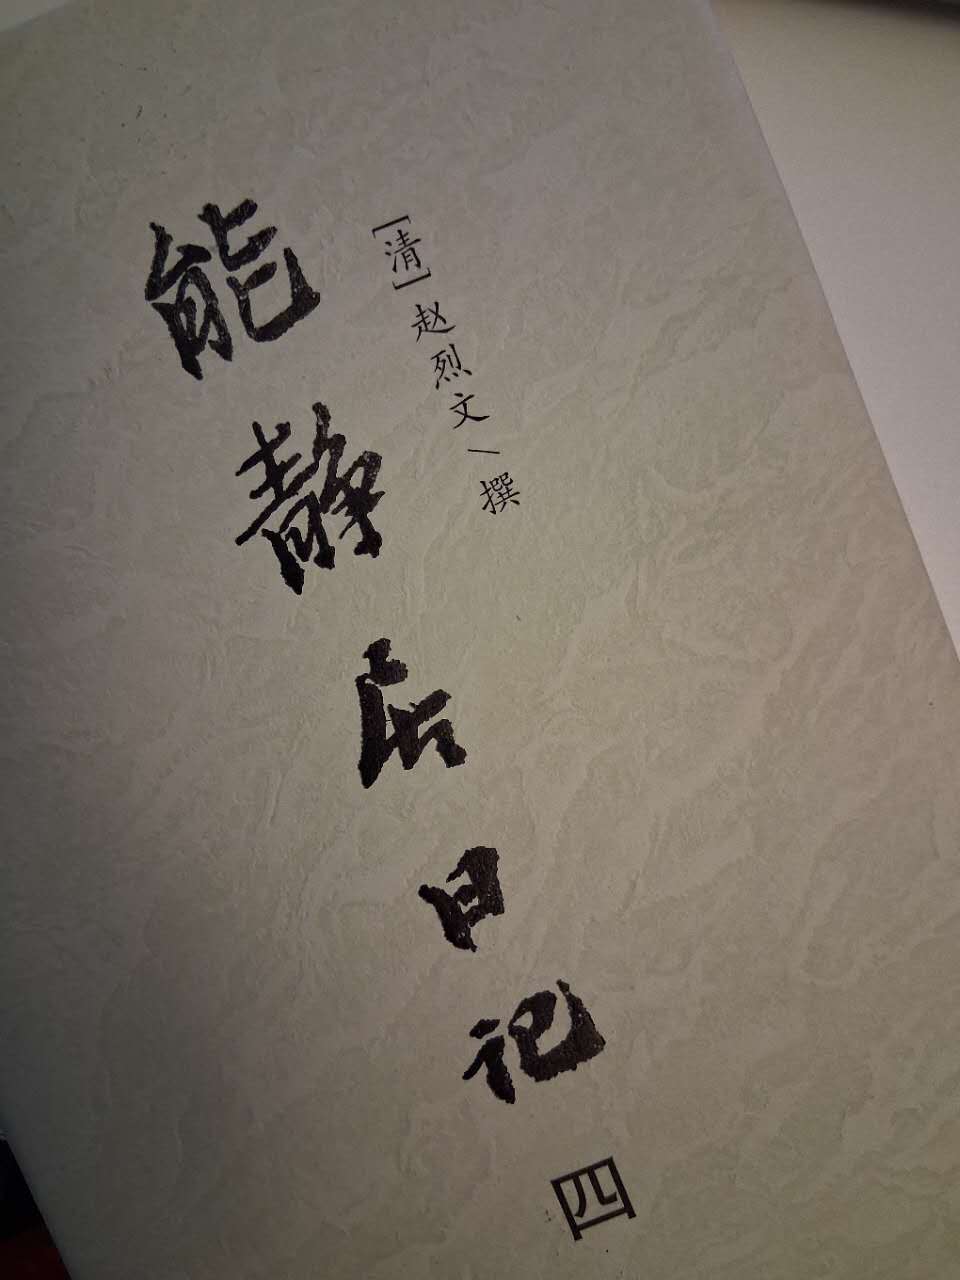 [清]赵烈文/撰
能静居日记
四